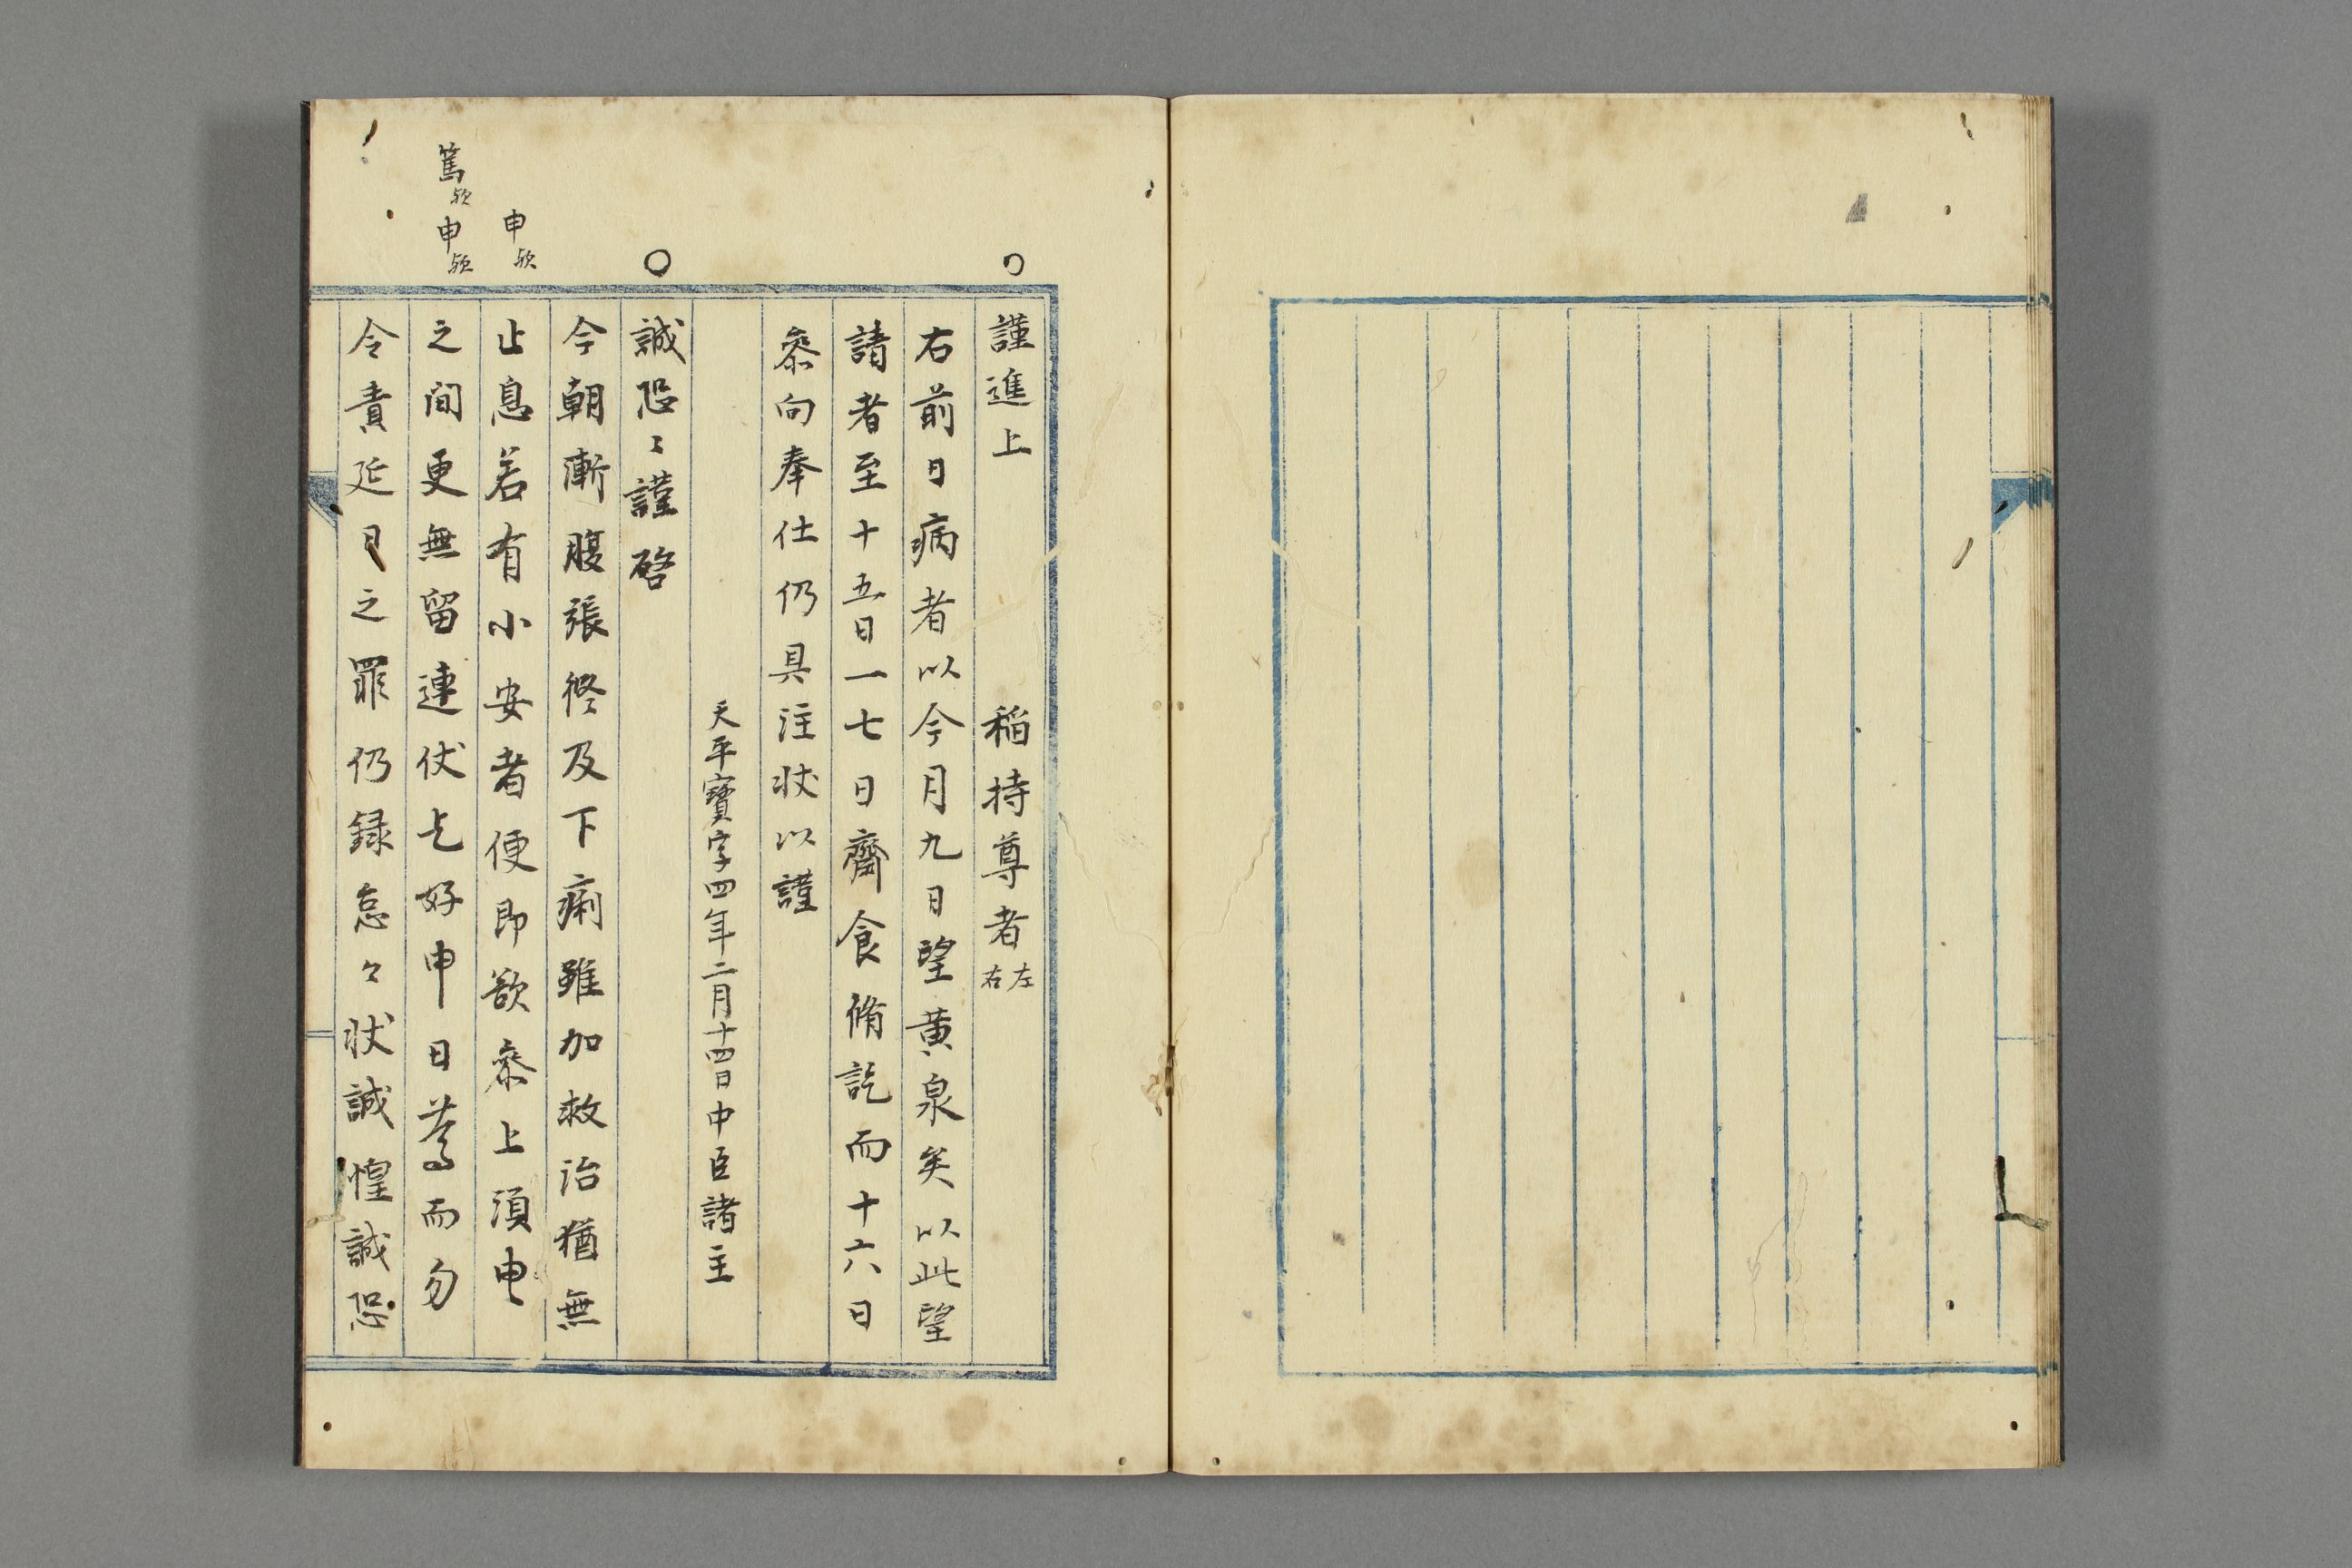 謹進上　稲持尊者左右
右前日病者以今月九日望黄泉矣以此望
請者至十五日一七日齊食脩訖而十六日
叅向奉仕仍具注状以謹
天平寶字四年二月十四日中臣諸主
誠恐〻謹啓
今朝漸腹張𢓭及下痢雖加救治猶無
止息若有小安者便即欲叅上須申
之间更無留連伏乞好申日苐而勿
令責延日之罪仍録怠々状誠惶誠恐
申歟
篤歟
申歟